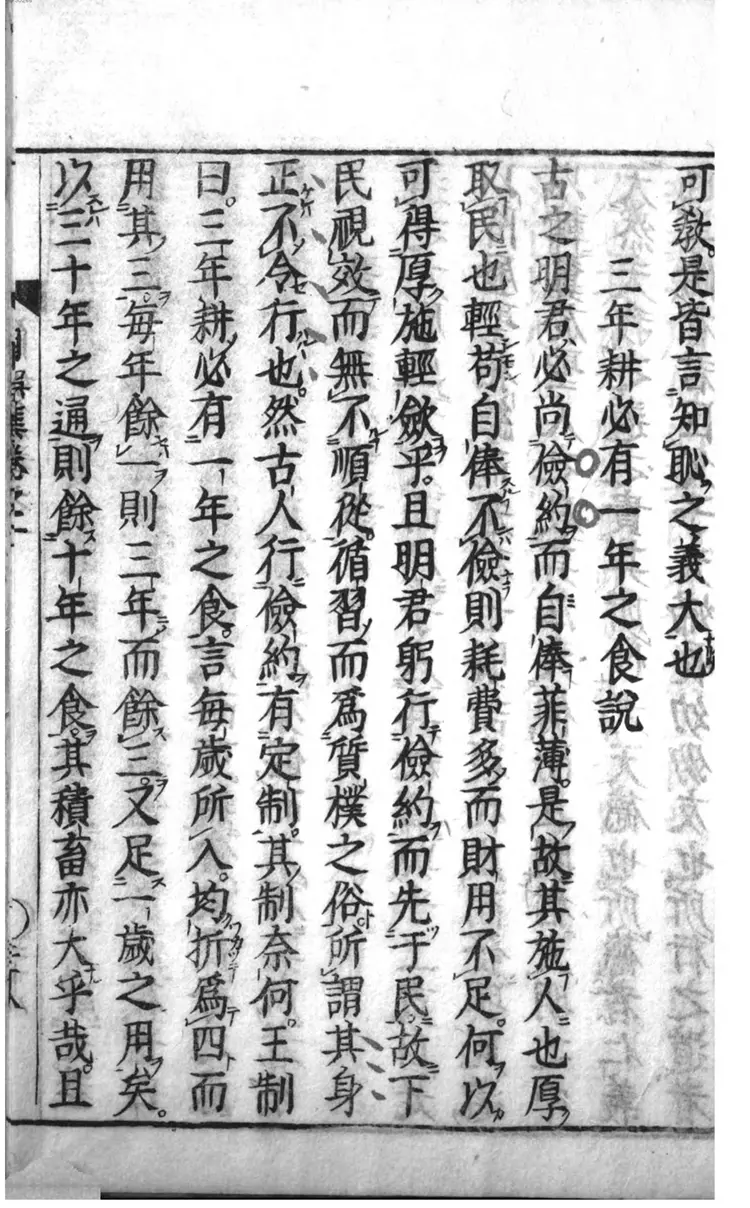 可教。是皆言知恥之義大也
三年耕必有一年之食説
古之明君必尚儉約而自俸菲薄。是故其施人也厚
取民也輕苟自俸不儉則耗費多而財用不足。何以
可得厚施輕歛乎。且明君躬行儉約而先于民故下
民視效而無不順從。循習而爲質樸之俗所謂其身
正不令行也。然古人行儉約有定制。其制奈何。王制
曰。三年耕必有一年之食。言毎歳所入。均折爲四而
用其三。毎年餘一則三年而餘三。又足一歳之用矣。
以三十年之通則餘十年之食。其積畜亦大乎哉。且